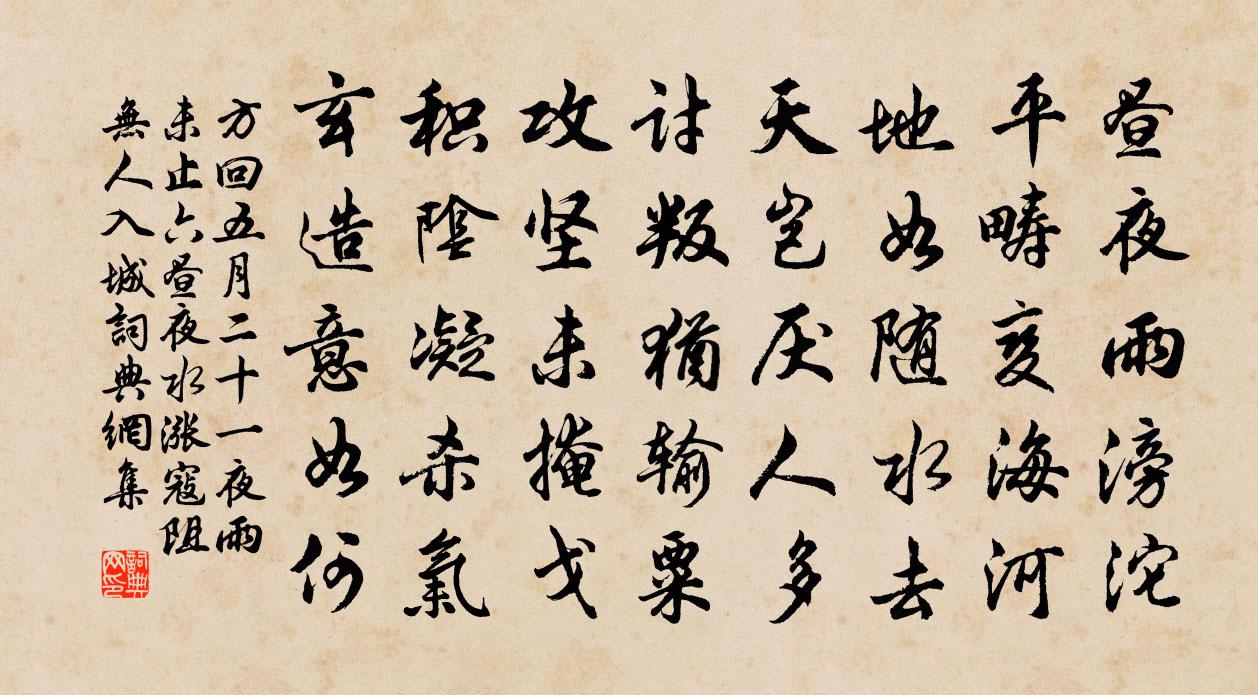 昼夜雨滂沱
平畴变海河
地如随水去
天岂厌人多
讨叛犹输粟
攻坚未掩戈
积阴凝杀氣
玄造意如何
方回五月二十一夜雨
未止六昼夜水漲寇阻
無人入城詞典網集
詞典
网印